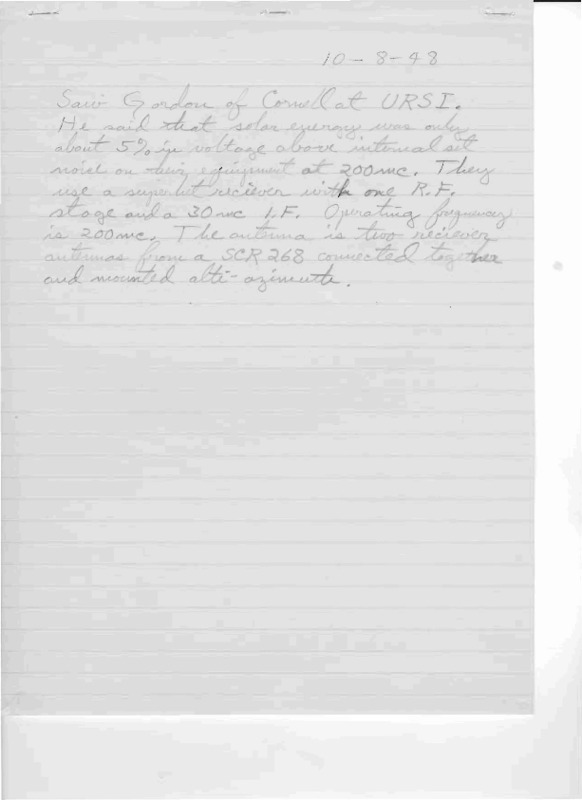 10-8-48
Saw Gordon of Cornell at URSI.
He said that solar energy was only
about 5% in voltage above internal set
noise on their equipment at 200mc. They
use a superhet reciever with one R.F.
stage and a 30mc I.F. Operating frequency
is 200mc. The antenna is two reciever
antennas from a SCR 268 connected together
and mounted alti-azimuth.